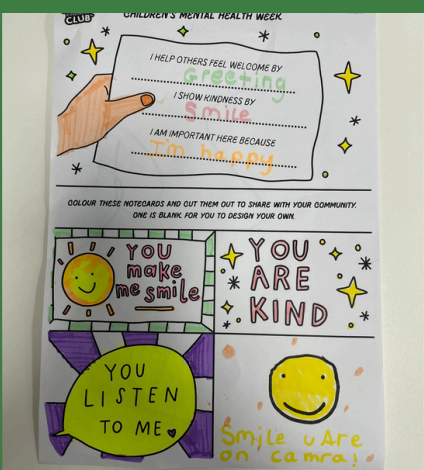 CLUB
CHILDREN'S MENTAL HEALTH WEEK
I HELP OTHERS FEEL WELCOME BY
Greeting
I SHOW KINDNESS BY
Smile
I AM IMPORTANT HERE BECAUSE
I'm happy
COLOUR THESE NOTECARDS AND CUT THEM OUT TO SHARE WITH YOUR COMMUNITY.
ONE IS BLANK FOR YOU TO DESIGN YOUR OWN.
YOU
make
me smile
YOU
ARE
KIND
YOU
LISTEN
TO ME
Smile u Are
on camra!